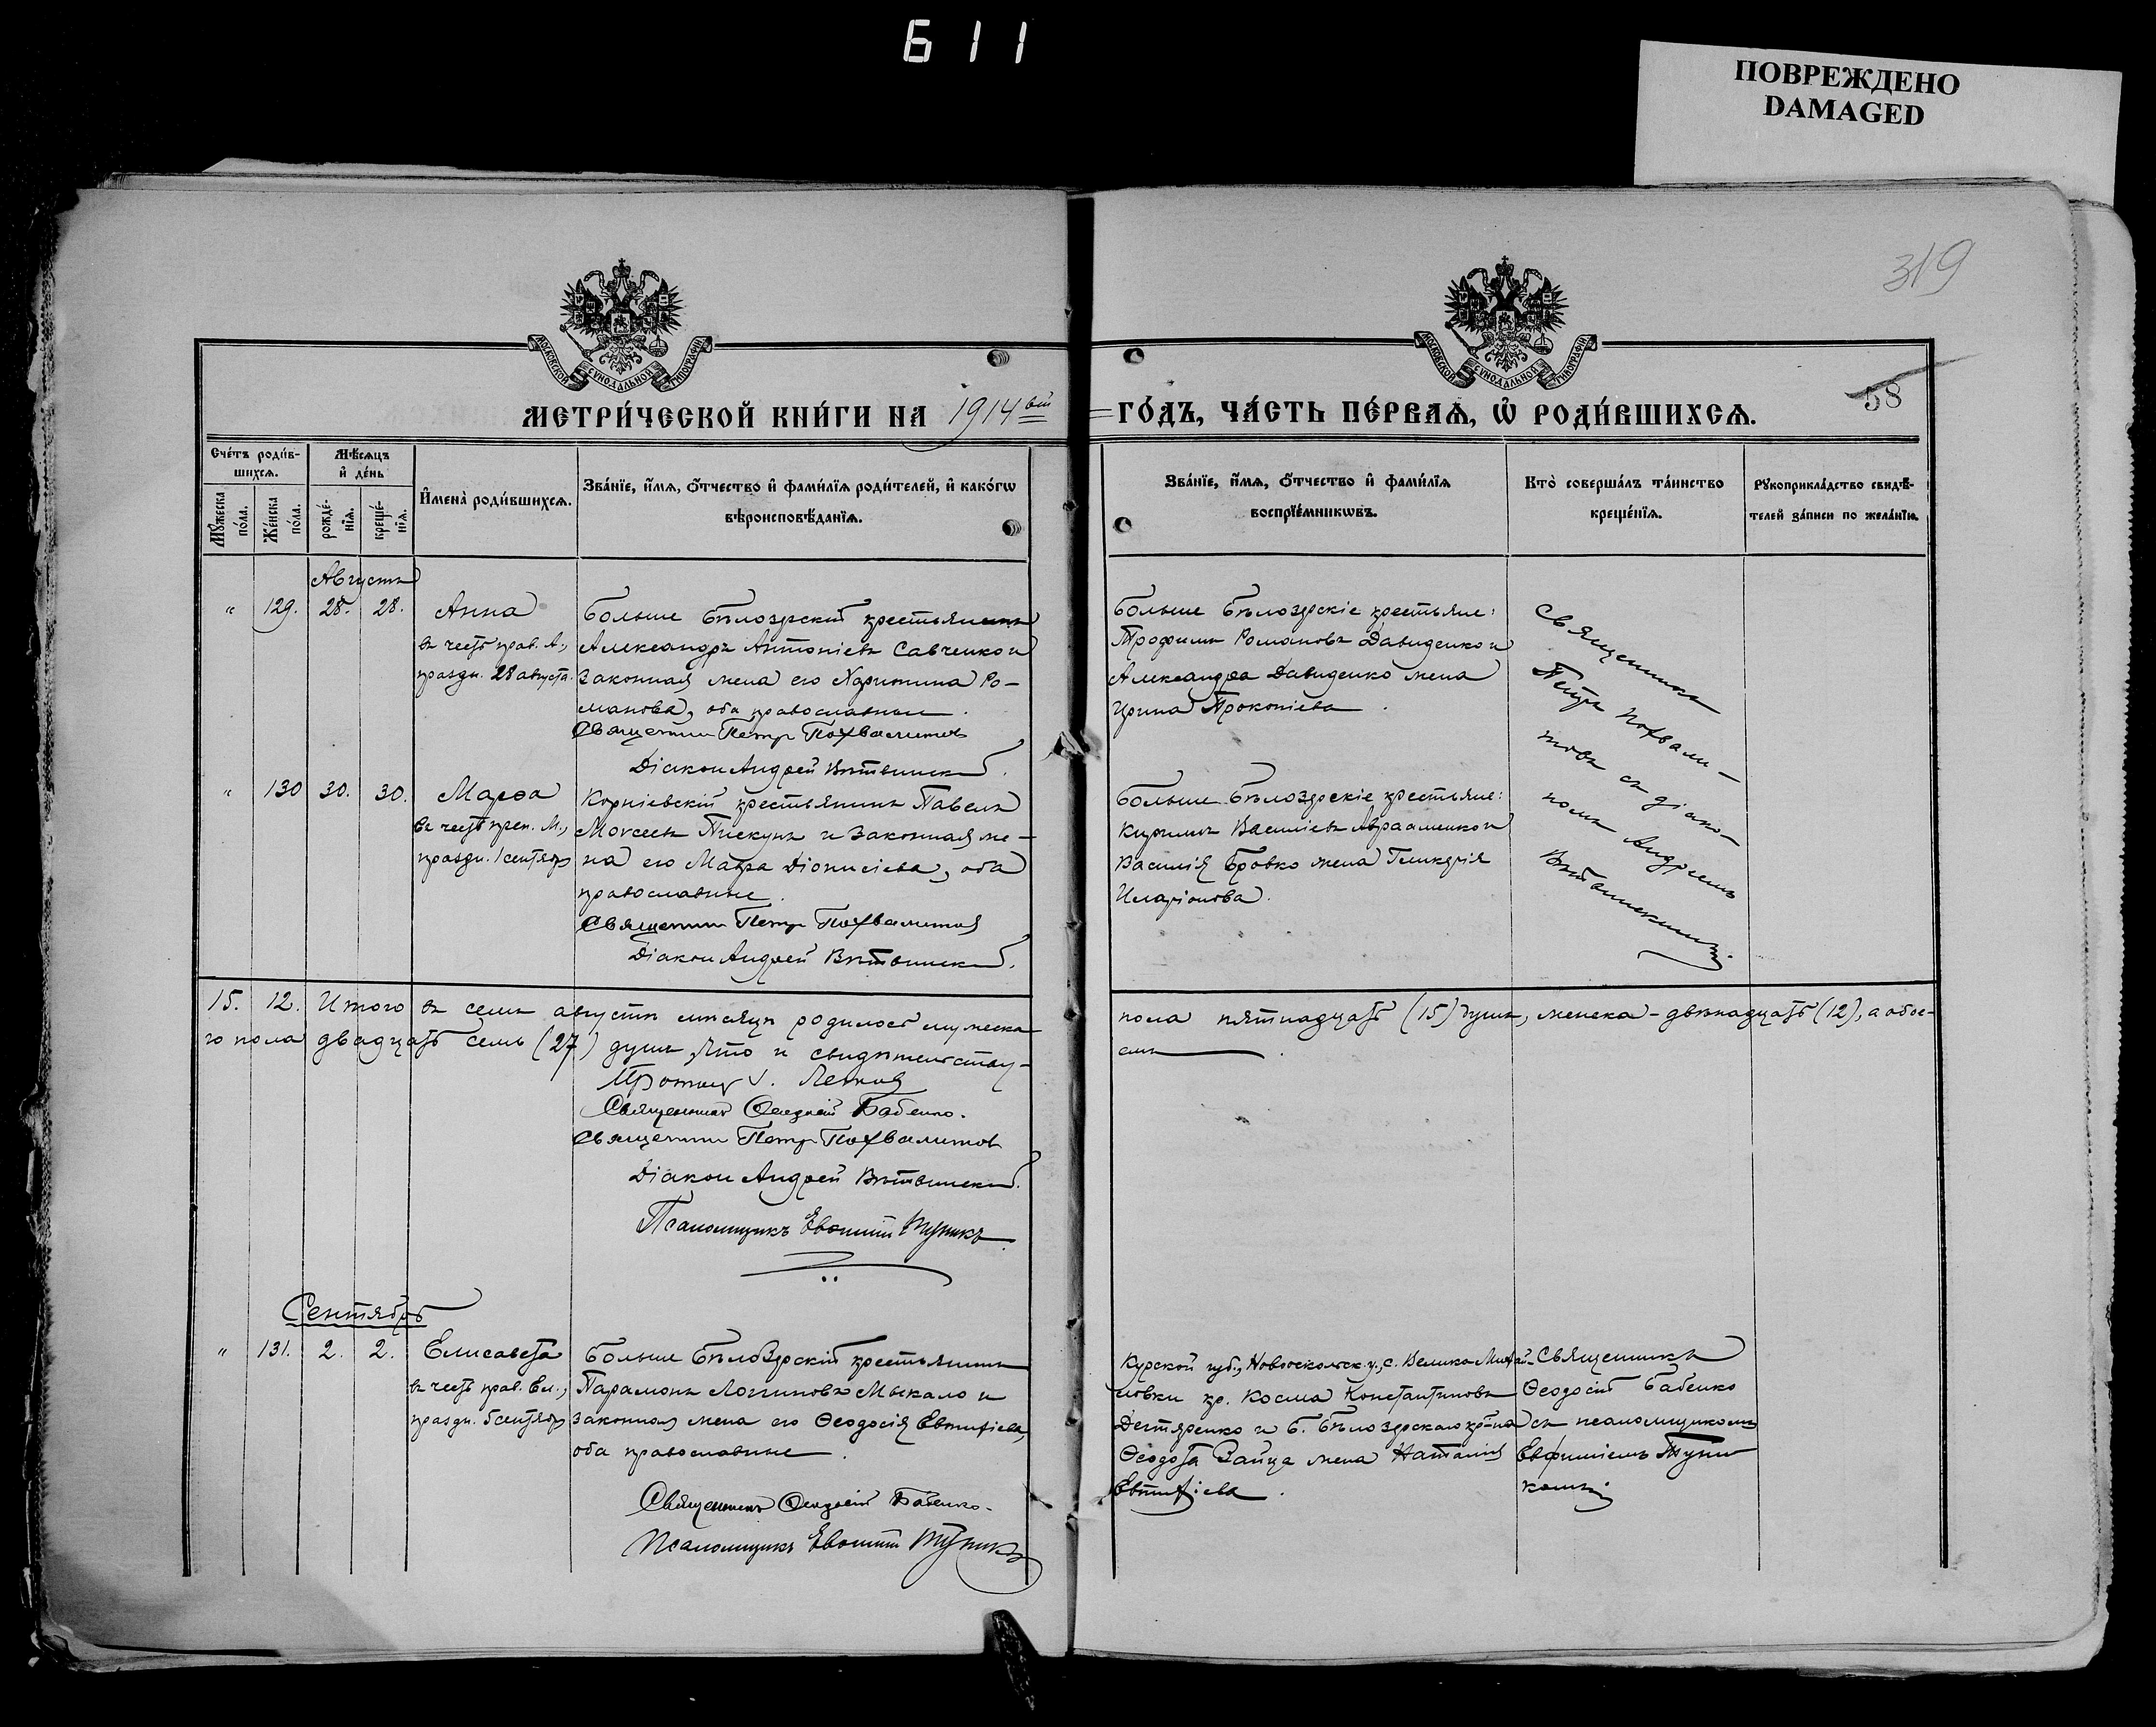 611
ПОВРЕЖДЕНО
DAMAGED
319
МОСКОВСКОЙ СУНОДАЛЬНОЙ ТИПОГРАФІИ
МОСКОВСКОЙ СУНОДАЛЬНОЙ ТИПОГРАФІИ
58
МЕТРИ́ЧЕСКОЙ КНИ́ГИ НА 1914 ый
ГО́ДЪ, ЧА́СТЬ ПЕ́РВАѦ, Ѡ҆ РОДИ́ВШИХСѦ.
Сче́тъ роди́в-
шихсѧ.
Мꙋ́жеска по́ла.
Же́нска по́ла.
Мѣ́сѧцъ
и҆ де́нь
рожде́-
нїѧ.
креще́-
нїѧ.
И҆мена̀ роди́вшихсѧ.
Зва́нїе, и҆́мѧ, ѻ҆́тчество и҆ фами́лїѧ роди́телей, и҆ како́гѡ
вѣроисповѣ́данїѧ.
Зва́нїе, и҆́мѧ, ѻ҆́тчество и҆ фами́лїѧ
воспрїе́мникѡвъ.
Кто̀ соверша́лъ та́инство
креще́нїѧ.
Рꙋкоприкла́дство свидѣ́-
телей за́писи по жела́нїю.
Августъ
" 129. 28. 28. Анна
въ честь прав. А.,
праздн. 28 августа.
Больше Бѣлозерскій крестьянинъ
Александръ Антоніевъ Савченко и
законная жена его Харитина Ро-
манова, оба православные.
Священник Петръ Похвалитовъ
Діакон Андрей Вѣтвинскій.
Больше Бѣлозерскіе крестьяне:
Трофимъ Романовъ Давиденко и
Александра Давиденко жена
Ирина Прокопіева.
Священникъ
Петръ Похвали-
товъ съ діако-
номъ Андреемъ
Вѣтвинскимъ.
" 130 30. 30. Марѳа
въ честь преп. М.,
праздн. 1 сентяб.
Корніевскій крестьянинъ Павелъ
Моѵсеевъ Пискунъ и законная же-
на его Мавра Діонисіева, оба
православные.
Священник Петръ Похвалитовъ
Діакон Андрей Вѣтвинскій.
Больше Бѣлозерскіе крестьяне:
Кириллъ Василіевъ Авраменко и
Василія Бровко жена Гликерія
Иларіонова.
15. 12. Итого въ семъ августѣ мѣсяцѣ родилось мужеска
пола пятнадцать (15) душъ, женска - двѣнадцать (12), а обое-
го пола двадцать семь (27) душъ, что и свидѣтельству-
емъ.
Священникъ Ѳеодосій Бабенко.
Священник Петръ Похвалитовъ
Діакон Андрей Вѣтвинскій.
Псаломщикъ Евѳимій Тупикъ.
Сентябрь
" 131. 2. 2. Елисавета
въ честь прав. Ел.,
праздн. 5 сентяб.
Больше Бѣлозерскій крестьянинъ
Парамонъ Логгиновъ Мыкало и
законная жена его Ѳеодосія Евтихіева,
оба православные.
Священникъ Ѳеодосій Бабенко.
Псаломщикъ Евѳимій Тупикъ
Курской губ., Новооскольск. у., с. Велико Михай-
ловки кр. Косма Константиновъ
Дегтяренко и Б. Бѣлозерскаго кр-на
Ѳеодота Зайца жена Наталія
Евтихіева.
Священникъ
Ѳеодосій Бабенко
съ псаломщикомъ
Евфиміемъ Тупи
комъ.